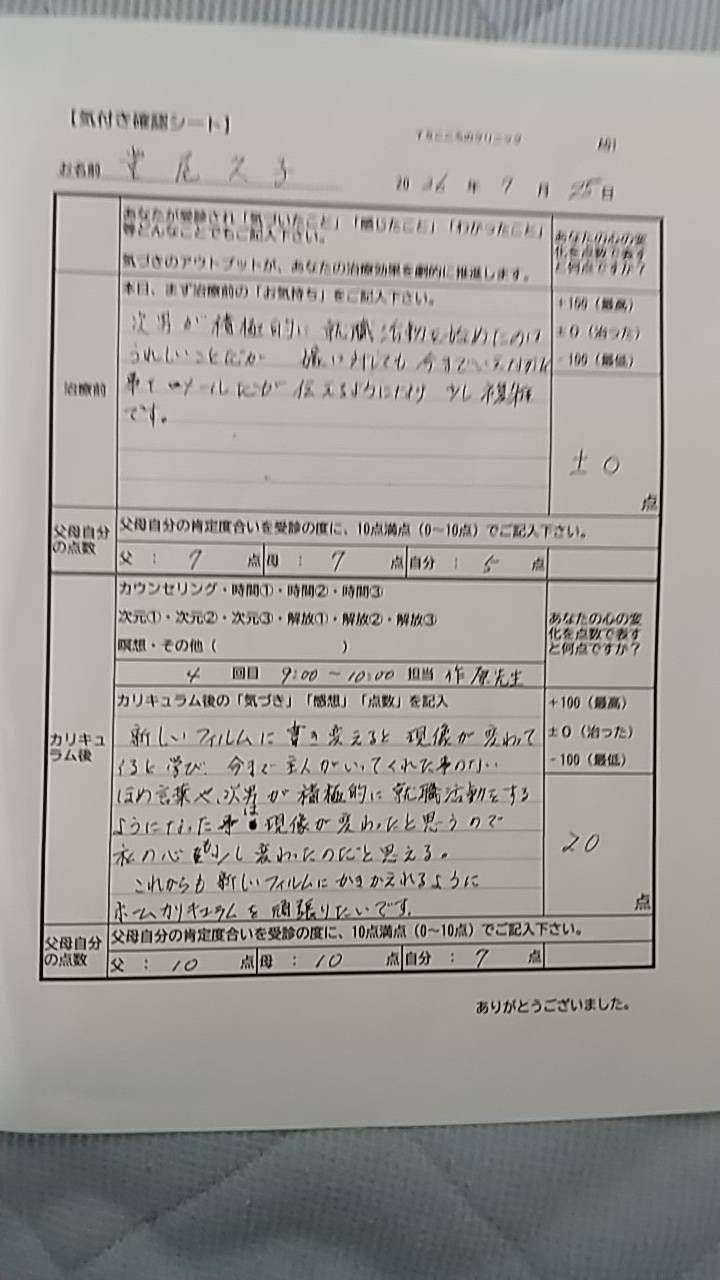 【気付き確認シート】
お名前
20 年 7 月 25 日
あなたが受診され「気づいたこと」「感じたこと」「わかったこと」
等どんなことでもご記入下さい。
気づきのアウトプットが、あなたの治療効果を劇的に推進します。
あなたの心の変
化を点数で表す
と何点ですか?
治療前
本日、まず治療前の「お気持ち」をご記入下さい。
次男が積極的に就職活動を始めたのは
うれしいことだが 対しても今まで
メールだが伝えるようになり 少し複雑
です。
+100(最高)
±0(治った)
-100(最低)
±0
点
父母自分
の点数
父母自分の肯定度合いを受診の度に、10点満点(0〜10点)でご記入下さい。
父 : 7 点 母 : 7 点 自分 : 5 点
カリキュ
ラム後
カウンセリング・時間①・時間②・時間③
次元①・次元②・次元③・解放①・解放②・解放③
瞑想・その他( )
あなたの心の変
化を点数で表す
と何点ですか?
4 回目 9:00 〜 10:00 担当 作原先生
カリキュラム後の「気づき」「感想」「点数」を記入
新しいフィルムに書き変えると現像が変わって
くると学び、今まで主人がいってくれた事のない
ほめ言葉や、次男が積極的に就職活動をする
ようになった事は現像が変わったと思うので
私の心も少し変わったのだと思える。
これからも新しいフィルムにかきかえれるように
ホームカリキュラムを頑張りたいです。
+100(最高)
±0(治った)
-100(最低)
20
点
父母自分
の点数
父母自分の肯定度合いを受診の度に、10点満点(0〜10点)でご記入下さい。
父 : 10 点 母 : 10 点 自分 : 7 点
ありがとうございました。